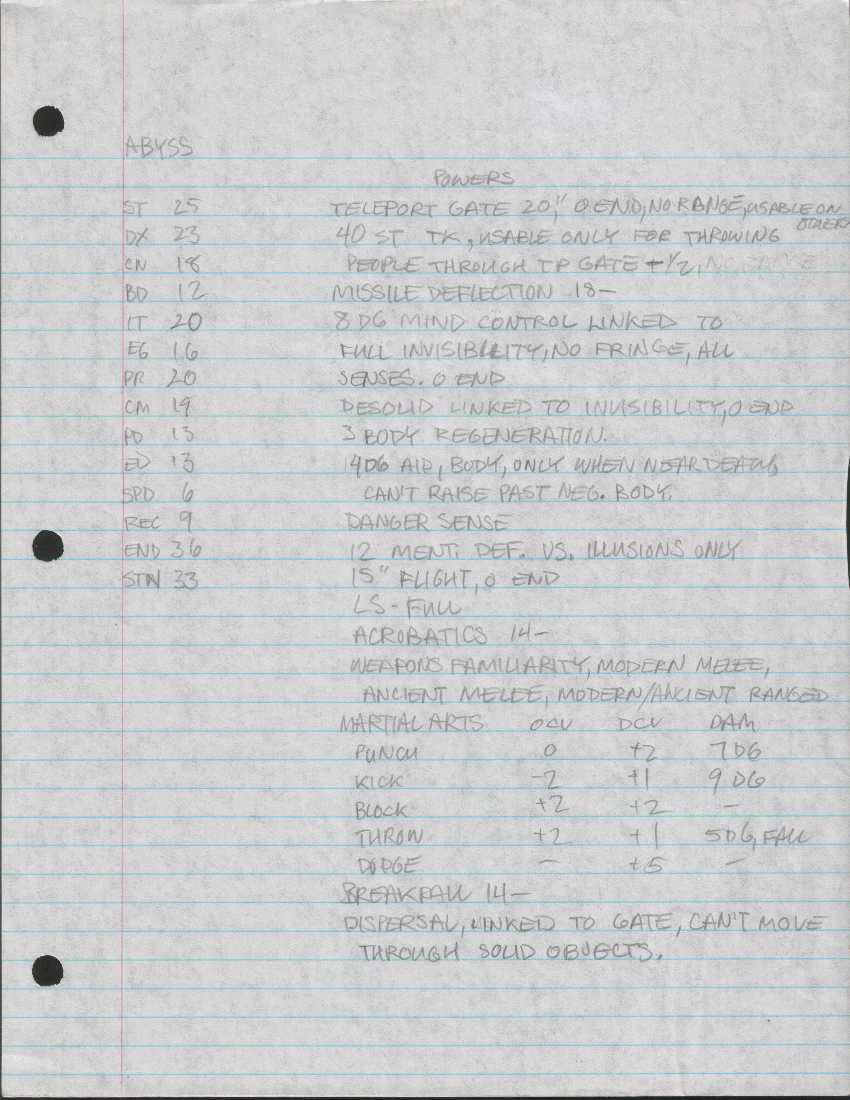 ABYSS
POWERS
ST 25 TELEPORT GATE 20", 0 END, NO RANGE, USABLE ON OTHERS
DX 23 40 ST TK, USABLE ONLY FOR THROWING
CN 18 PEOPLE THROUGH TP GATE -1/2,
BD 12 MISSILE DEFLECTION 18-
IT 20 8 D6 MIND CONTROL LINKED TO
EG 16 FULL INVISIBILITY, NO FRINGE, ALL
PR 20 SENSES. 0 END
CM 19 DESOLID LINKED TO INVISIBILITY, 0 END
PD 13 3 BODY REGENERATION.
ED 13 14D6 AID, BODY, ONLY WHEN NEAR DEATH,
SPD 6 CAN'T RAISE PAST NEG. BODY.
REC 9 DANGER SENSE
END 36 12 MENT. DEF. VS. ILLUSIONS ONLY
STN 33 15" FLIGHT, 0 END
LS - FULL
ACROBATICS 14-
WEAPONS FAMILIARITY, MODERN MELEE,
ANCIENT MELEE, MODERN/ANCIENT RANGED
MARTIAL ARTS OCV DCV DAM
PUNCH 0 +2 7 D6
KICK -2 +1 9 D6
BLOCK +2 +2 -
THROW +2 +1 5D6, FALL
DODGE - +5 -
BREAKFALL 14-
DISPERSAL, LINKED TO GATE, CAN'T MOVE
THROUGH SOLID OBJECTS.